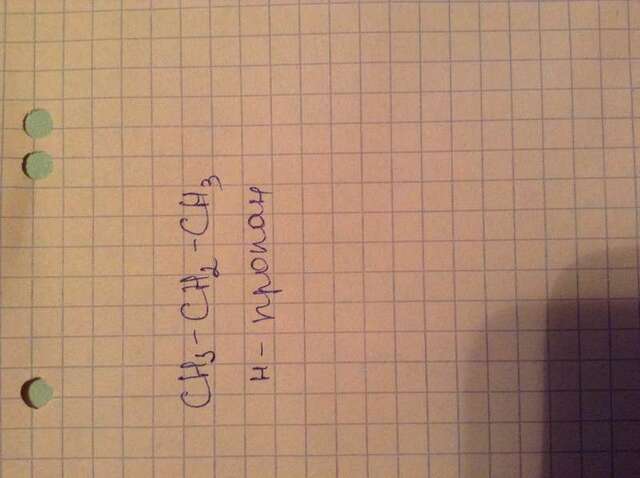 CH₃-CH₂-CH₃
н-пропан